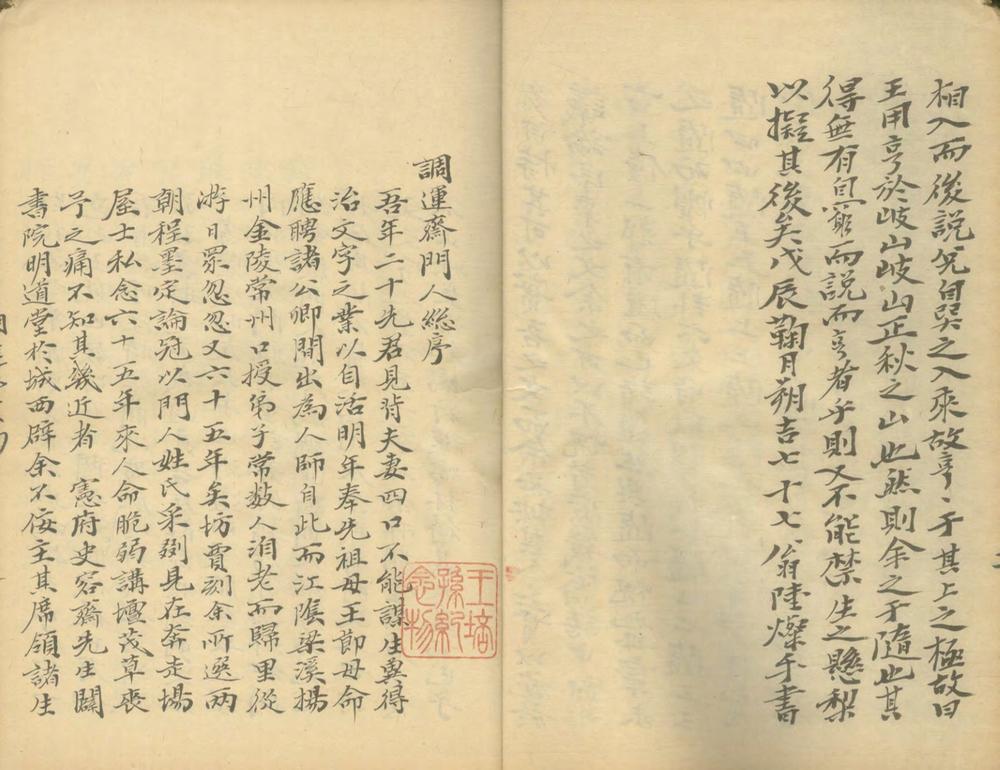 相入而後説兊自巽之入來故亨、于其上之極故曰
王用亨於岐山岐山正秋之山也然則余之于隨也其
得無有自而説而亨者乎則又不能禁生之懸梨
以擬其後矣戊辰鞠月朔吉七十七翁陸燦手書
調運齋門人総序
吾年二十先君見背夫妻四口不能謀生與得
治文字之業以自活明年奉先祖母王節母命
應聘諸公卿間出為人師自此而江隂梁溪揚
州金陵常州口授弟子常數人洎老而歸里從
游日眾忽忽又六十五年矣坊賈刻余所選两
朝程墨定論冠以門人姓氏采剟見在奔走場
屋士私念六十五年來人命脆弱講壇茂草喪
予之痛不知其幾近者 憲府史容齋先生闢
書院明道堂於城西辟余不佞主其席領諸生
王培
孫紀
念物